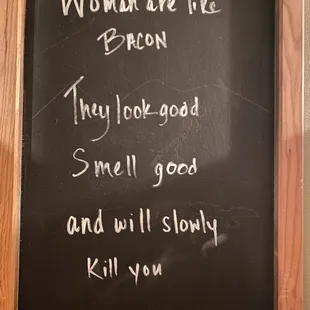 Woman are like
BACON
They look good
Smell good
and will slowly
Kill you